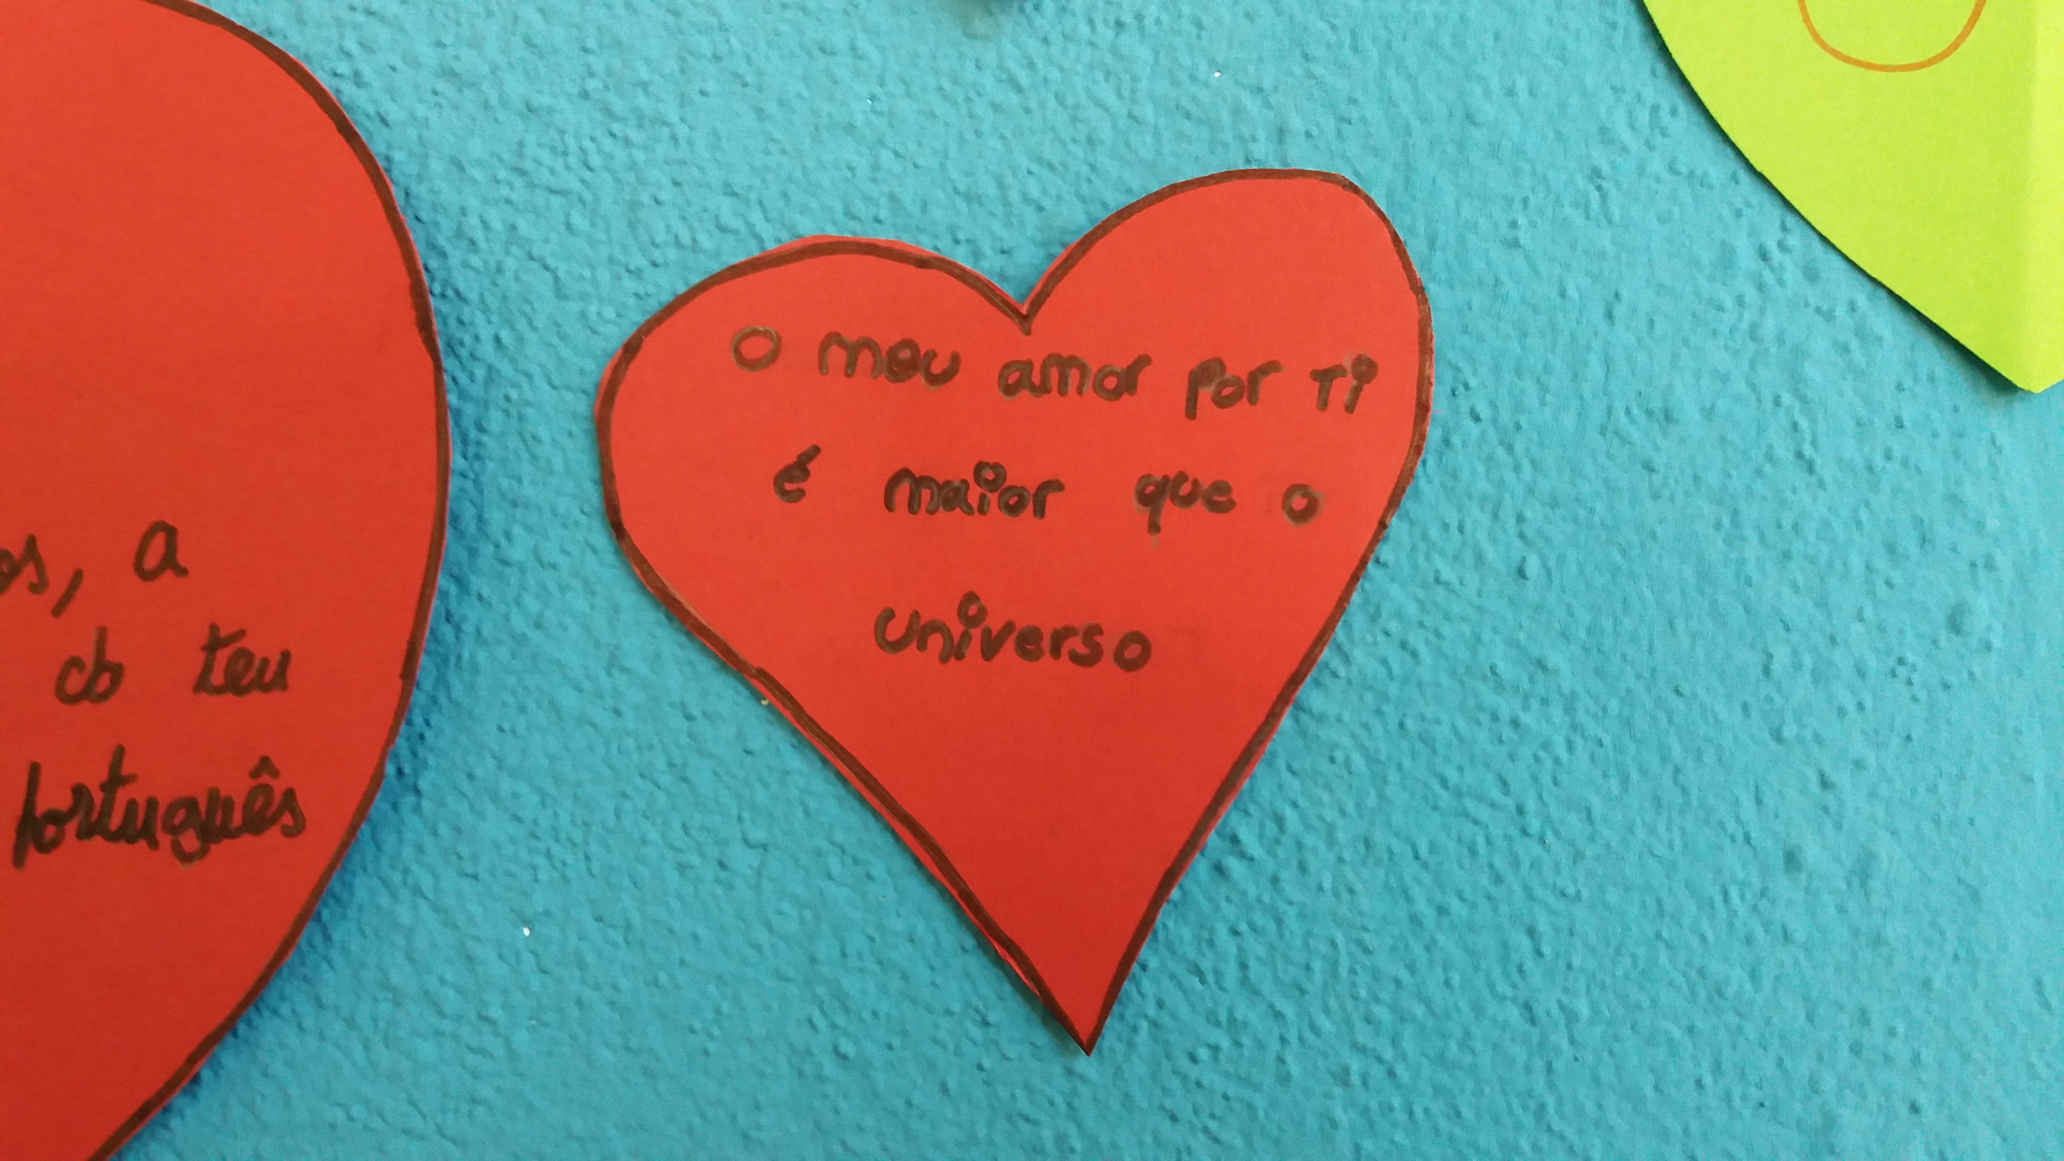 os, a
do teu
português
O meu amor por Ti
é maior que o
universo